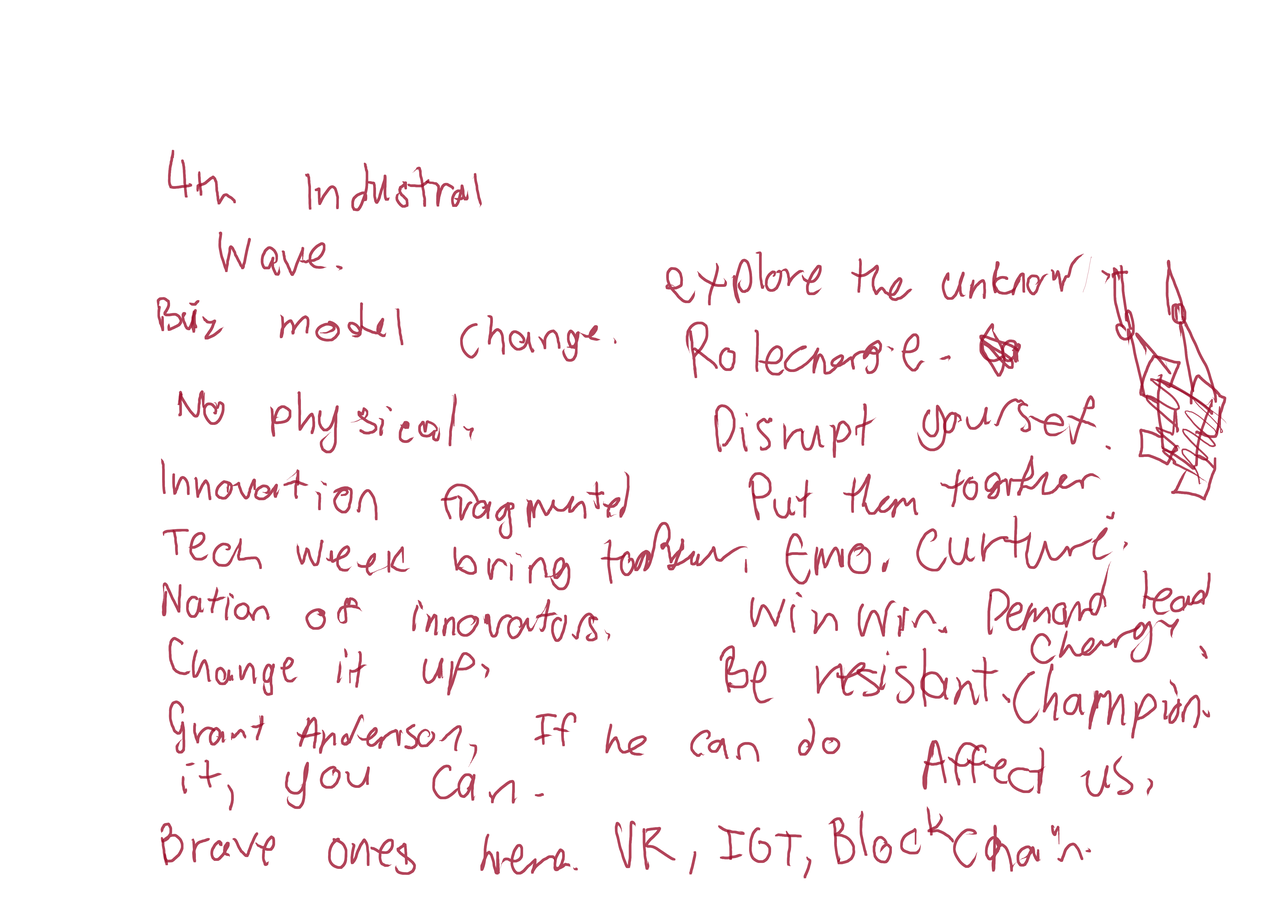 4th Industral
Wave.
Biz model change.
No physical.
Innovation fragmented
Tech week bring
Nation of innovators.
Change it up.
Grant Anderson, If he can do
it, you can.
Brave ones here. VR, IOT, Blockchain.
explore the unknow
Role change.
Disrupt yourself.
Put them together
Emo. Curture.
Win Win. Demand lead
change.
Be resistant. Champion.
Affect us.